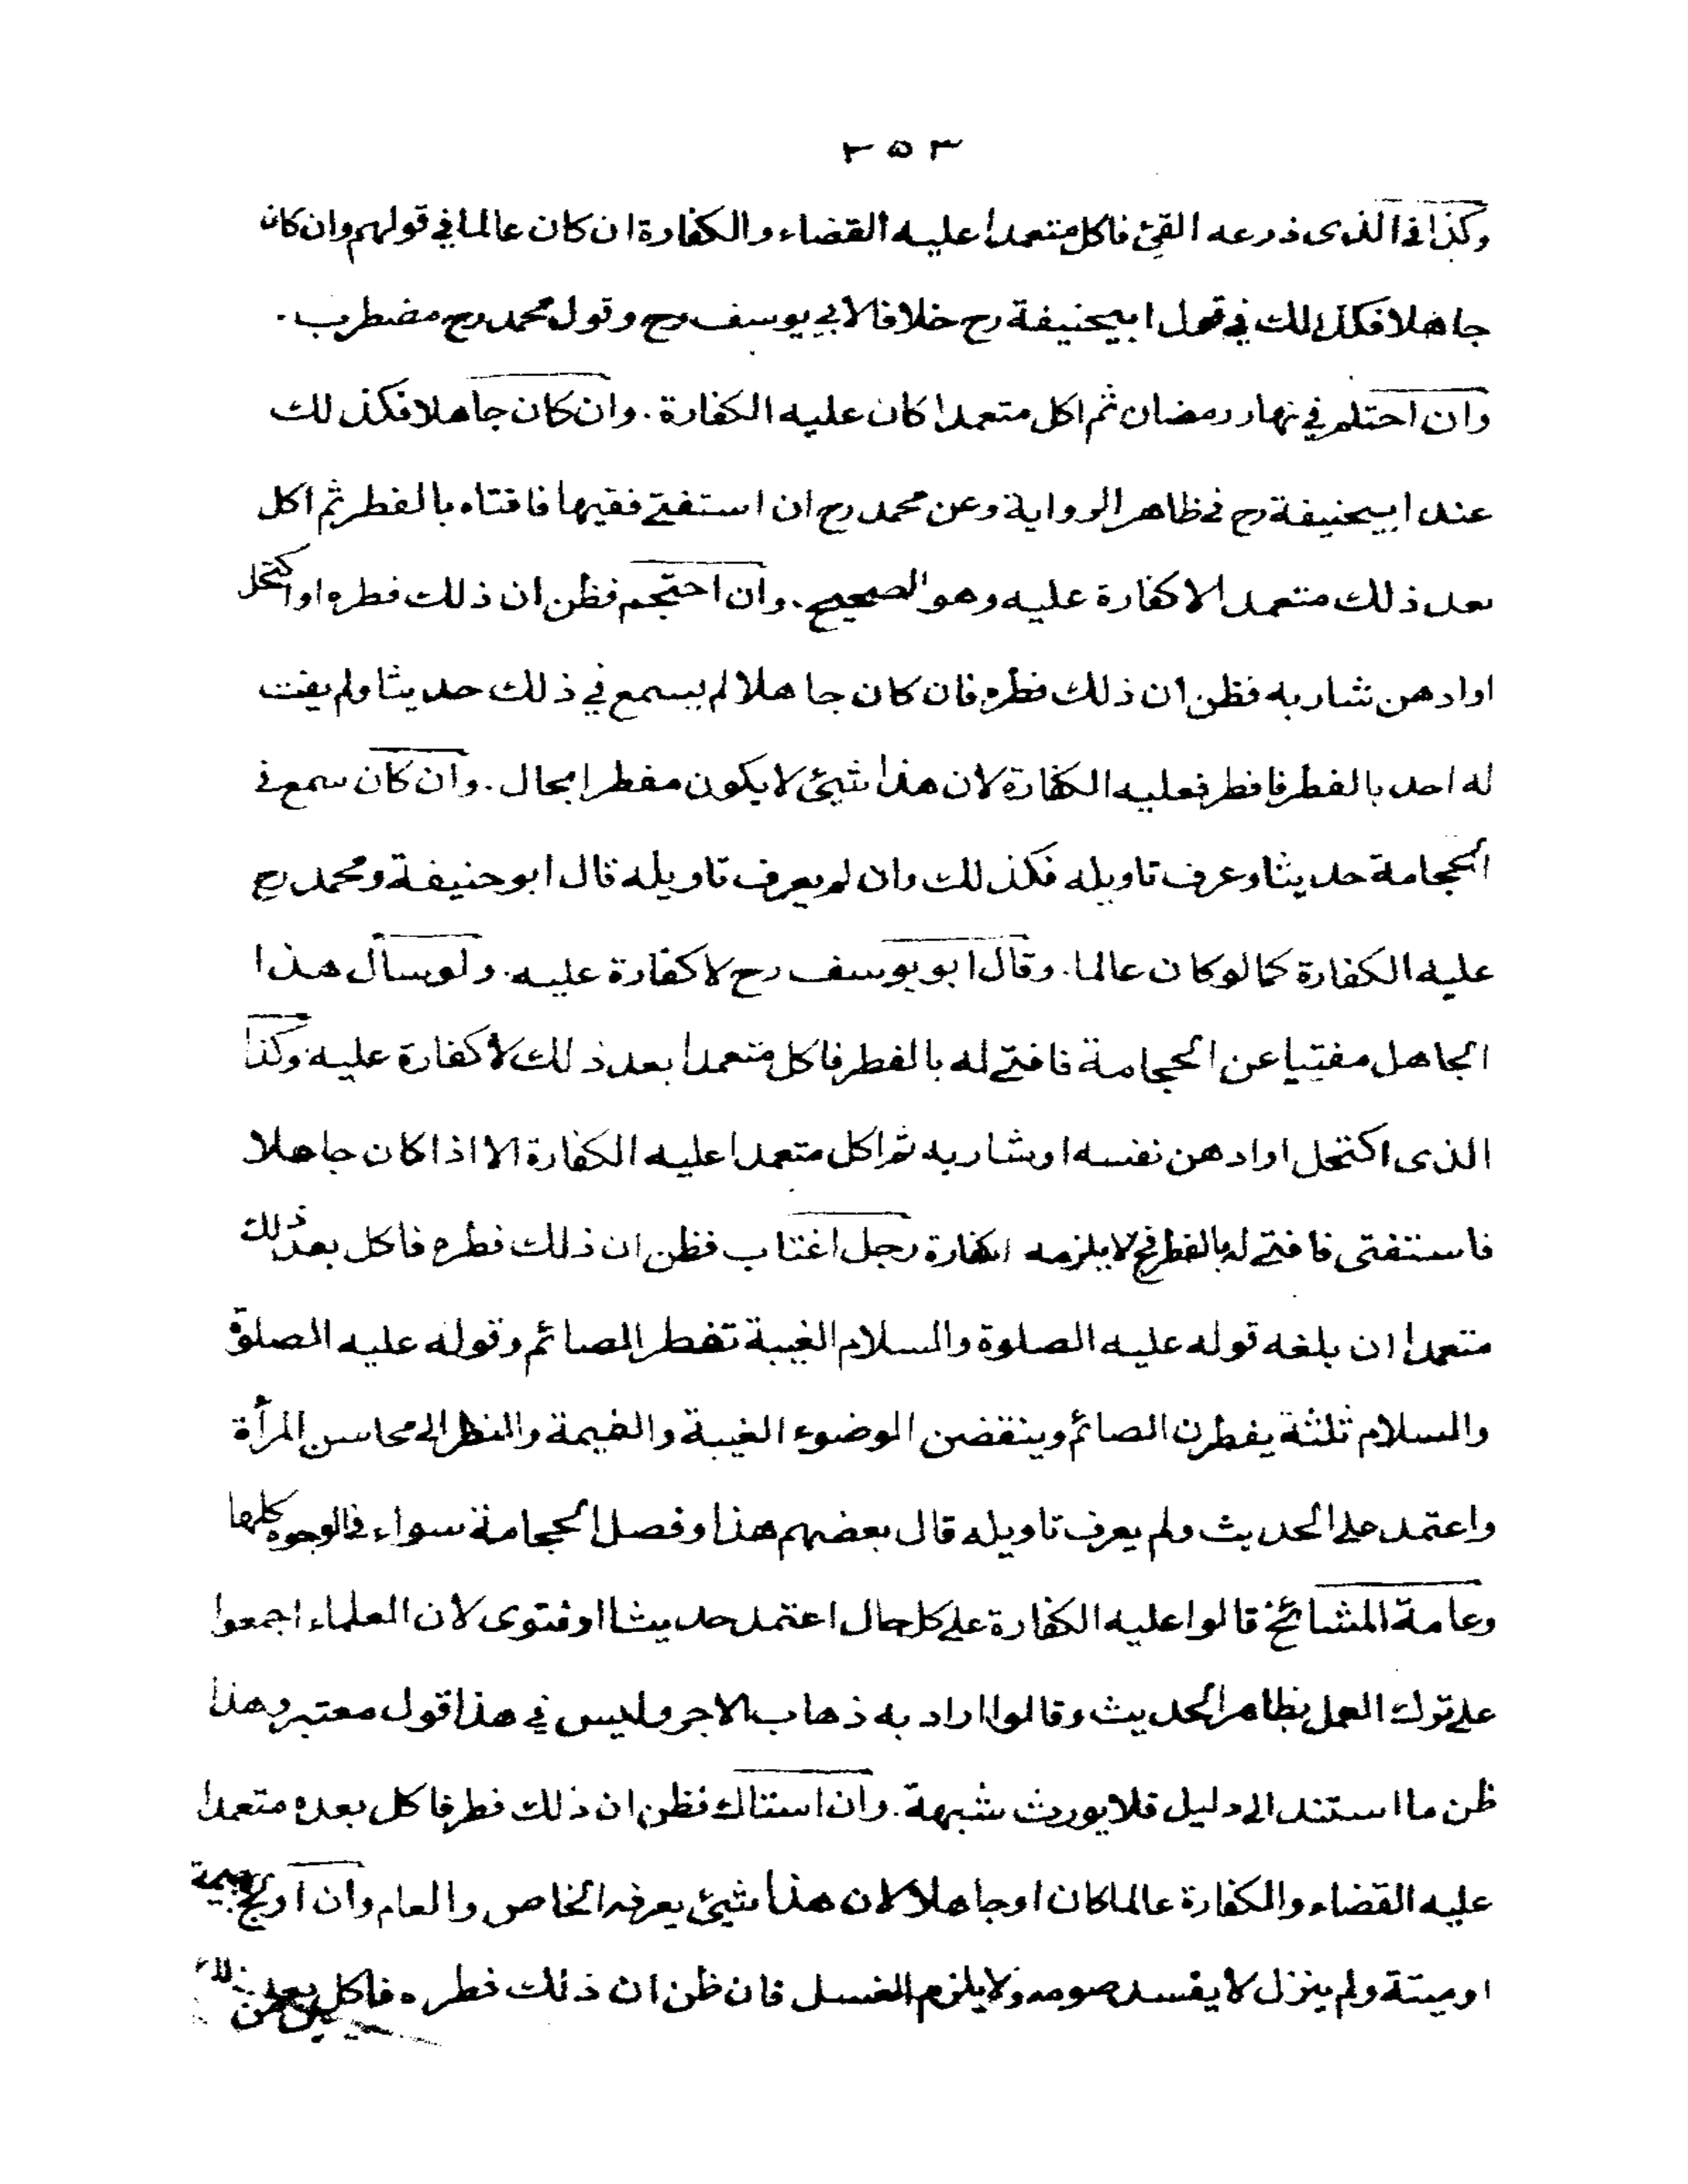 ٢٥٣
وكذا في الذى ذرعه القئ فاكل متعمدا عليه القضاء والكفارة ان كان عالما في قولهم وان كان
جاهلا فكذلك في قول ابيحنيفة رح خلافا لابي يوسف رح وقول محمد رح مضطرب .
وان احتلم في نهار رمضان ثم اكل متعمدا كان عليه الكفارة . وان كان جاهلا فكذلك
عند ابيحنيفة رح في ظاهر الرواية وعن محمد رح ان استفتى فقيها فافتاه بالفطر ثم اكل
بعد ذلك متعمدا لا كفارة عليه وهو الصحيح . وان احتجم فظن ان ذلك فطره او اكتحل
او ادهن شاربه فظن ان ذلك فطره فان كان جاهلا لم يسمع في ذلك حديثا ولم يفت
له احد بالفطر فافطر فعليه الكفارة لان هذا شيئ لا يكون مفطرا بحال . وان كان سمع في
الحجامة حديثا وعرف تاويله فكذلك وان لم يعرف تاويله قال ابو حنيفة ومحمد رح
عليه الكفارة كما لو كان عالما . وقال ابو يوسف رح لا كفارة عليه . ولو سأل هذا
الجاهل مفتيا عن الحجامة فافتى له بالفطر فاكل متعمدا بعد ذلك لا كفارة عليه وكذا
الذى اكتحل او ادهن نفسه او شاربه ثم اكل متعمدا عليه الكفارة الا اذا كان جاهلا
فاستفتى فافتى له بالفطر فح لا يلزمه الكفارة رجل اغتاب فظن ان ذلك فطره فاكل بعد ذلك
متعمدا ان بلغه قوله عليه الصلوة والسلام الغيبة تفطر الصائم وقوله عليه الصلوة
والسلام ثلثة يفطرن الصائم وينقضن الوضوء الغيبة والنميمة والنظر الى محاسن المرأة
واعتمد على الحديث ولم يعرف تاويله قال بعضهم هذا وفصل الحجامة سواء في الوجوه كلها
وعامة المشائخ قالوا عليه الكفارة على كل حال اعتمد حديثا او فتوى لان العلماء اجمعوا
على ترك العمل بظاهر الحديث وقالوا اراد به ذهاب الاجر وليس في هذا قول معتبر وهذا
ظن ما استند الى دليل فلا يورث شبهة . وان استاك فظن ان ذلك فطر فاكل بعده متعمدا
عليه القضاء والكفارة عالما كان او جاهلا لان هذا شيئ يعرفه الخاص والعام وان اولج بهيمة
او ميتة ولم ينزل لا يفسد صومه ولا يلزم الغسل فان ظن ان ذلك فطره فاكل بعد ذلك